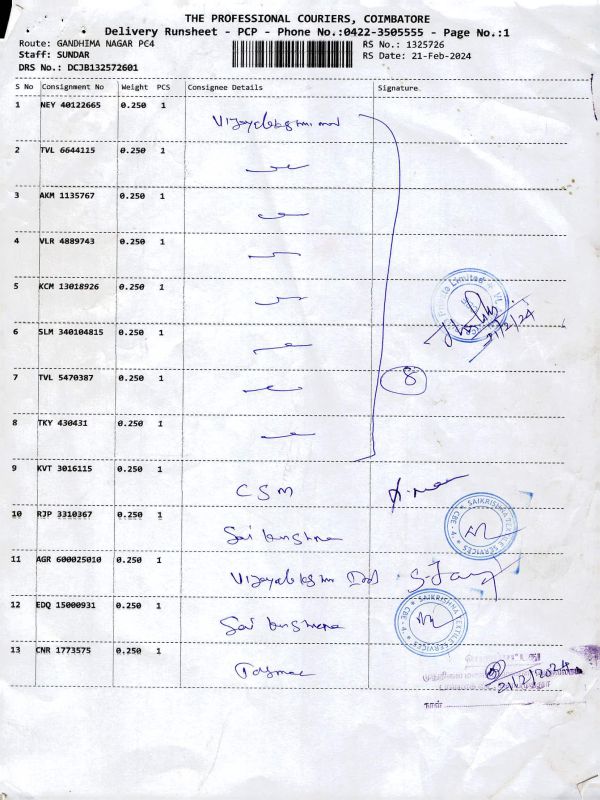 THE PROFESSIONAL COURIERS, COIMBATORE
Delivery Runsheet - PCP - Phone No.:0422-3505555 - Page No.:1
Route: GANDHIMA NAGAR PC4 RS No.: 1325726
Staff: SUNDAR RS Date: 21-Feb-2024
DRS No.: DCJB132572601
S No Consignment No Weight PCS Consignee Details Signature
1 NEY 40122665 0.250 1
2 TVL 6644115 0.250 1
3 AKM 1135767 0.250 1
4 VLR 4889743 0.250 1
5 KCM 13018926 0.250 1
21/2/24
6 SLM 340104815 0.250 1
7 TVL 5470387 0.250 1 8
8 TKY 430431 0.250 1
9 KVT 3016115 0.250 1 CSM
10 RJP 3310367 0.250 1 Sai SAIKRISHNA TEXTILE SERVICES CBE - 4
11 AGR 600025010 0.250 1
12 EDQ 15000931 0.250 1 Sai SAIKRISHNA TEXTILE SERVICES CBE - 4
13 CNR 1773575 0.250 1 Tasmac
21/2/2024
நாள்